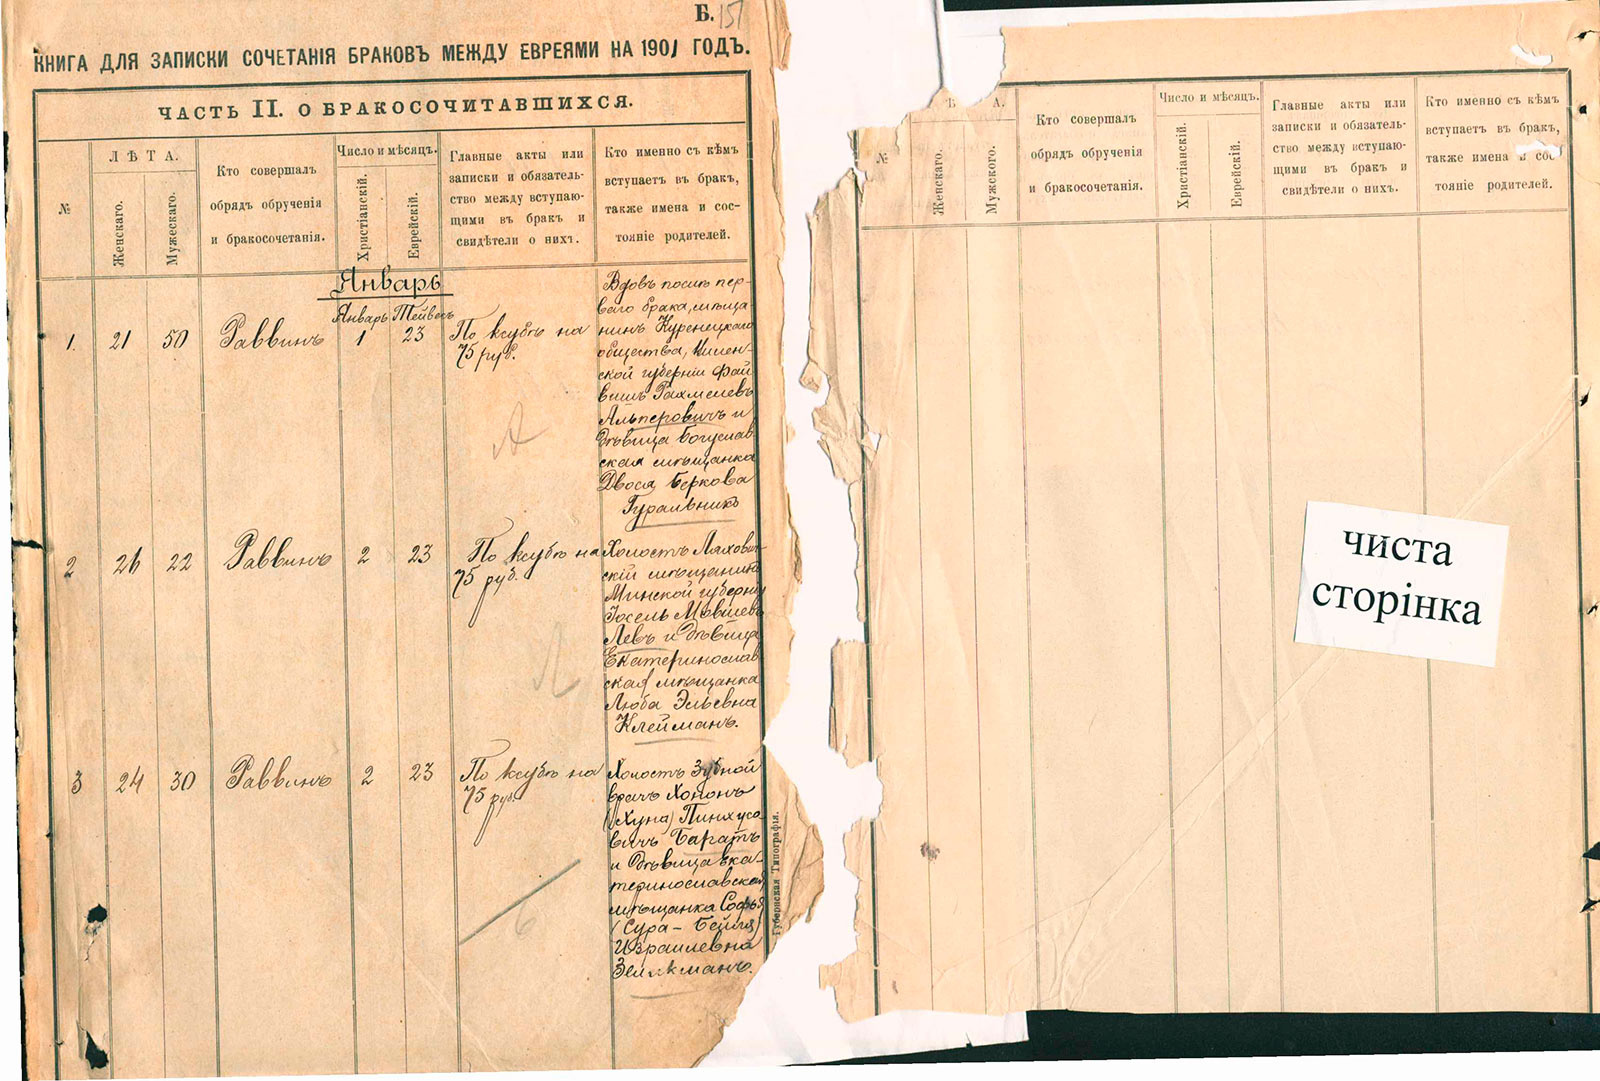 Б. 151
КНИГА ДЛЯ ЗАПИСКИ СОЧЕТАНІЯ БРАКОВЪ МЕЖДУ ЕВРЕЯМИ НА 1901 ГОДЪ.
ЧАСТЬ II. О БРАКОСОЧИТАВШИХСЯ.
№
ЛѢТА.
Женскаго.
Мужескаго.
Кто совершалъ
обрядъ обрученія
и бракосочетанія.
Число и мѣсяцъ.
Христіанскій.
Еврейскій.
Главные акты или
записки и обязатель-
ство между вступаю-
щими въ бракъ и
свидѣтели о нихъ.
Кто именно съ кѣмъ
вступаетъ въ бракъ,
также имена и сос-
тояніе родителей.
Январь
Январь Тейвесъ
1. 21 50 Раввинъ 1 23 По ксубѣ на
75 руб.
Вдовъ послѣ пер-
ваго брака, мѣща-
нинъ Куренецкаго
общества, Вилен-
ской губерніи Фай
вишъ Рахмелевъ
Альперовичъ и
дѣвица Богуслав
ская мѣщанка
Двося Беркова
Гуральникъ
2 26 22 Раввинъ 2 23 По ксубѣ на
75 руб.
Холостъ Ляхович
скій мѣщанинъ
Минской губерніи
Іосель Мовшевъ
Левъ и дѣвица
Екатеринослав
ская мѣщанка
Люба Эльевна
Клейманъ.
3 24 30 Раввинъ 2 23 По ксубѣ на
75 руб.
Холостъ Зубной
врачъ Хононъ
(Хуна) Пинхусо
вичъ Баратъ
и дѣвица ека-
теринославская
мѣщанка Софья
(Сура-Бейля)
Израилевна
Зеликманъ.
Губернская Типографія.
№
А.
Женскаго.
Мужского.
Кто совершалъ
обрядъ обрученія
и бракосочетанія.
Число и мѣсяцъ.
Христіанскій.
Еврейскій.
Главные акты или
записки и обязатель-
ство между вступаю-
щими въ бракъ и
свидѣтели о нихъ.
Кто именно съ кѣмъ
вступаетъ въ бракъ,
также имена и сос-
тояніе родителей.
чиста
сторінка